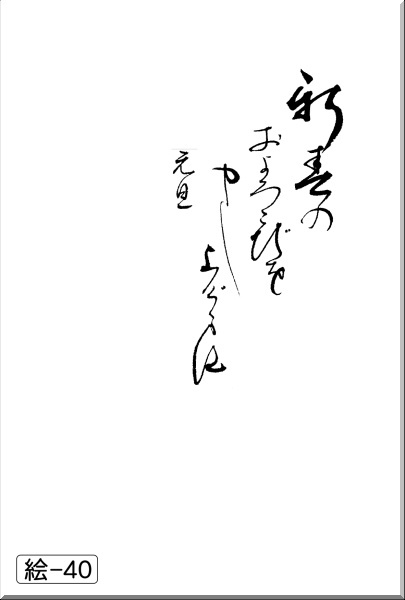 新春の
およろこびを
申し
上げます
元旦
絵-40